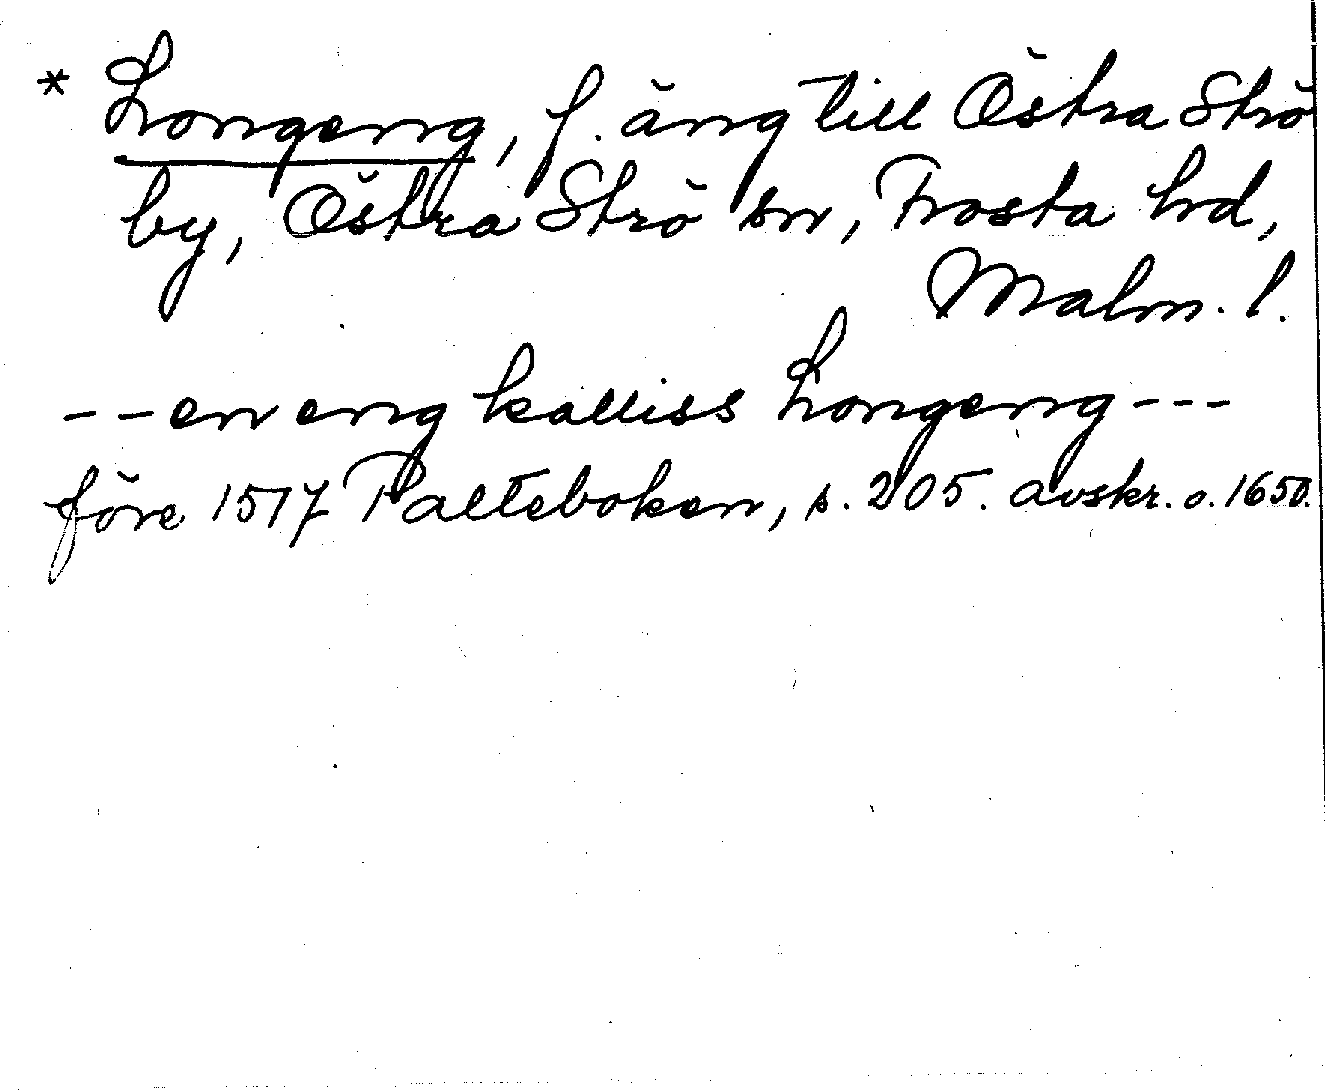 * Longeng, f. äng till Östra Strö
by, Östra Strö sn, Frosta hd,
Malm. l.
-- en eng kalliss Longeng ---
före 1517 Palteboken, s. 205. avskr. o. 1650.